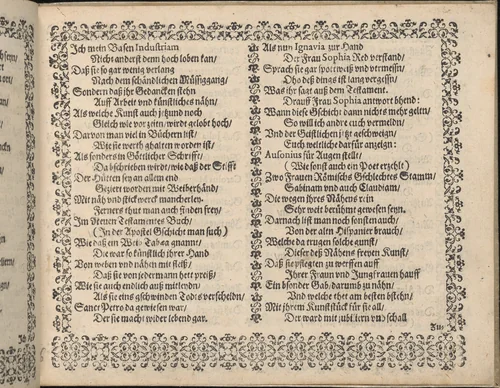 Ich mein Basen Industriam
Nicht anderst denn hoch loben kan/
Daß sie so gar wenig verlang
Nach dem schändlichen Müssiggang/
Sondern daß ihr Gedancken stehn
Auff Arbeit vnd künstliches nähn/
Als welche Kunst auch jtzund noch
Gleich wie vor zeitn/ wirdt gelobt hoch/
Darvon man viel in Büchern ist/
Wie sie werth ghalten worden ist/
Als sonders in Göttlicher Schrifft/
Da bschrieben wirdt/ wie daß der Stifft
Der Hütten sey an allem end
Geziert worden mit Weiberhänd/
Mit näh vnd stickwerck mancherley.
Ferners thut man auch finden frey/
Im Newen Testamentes Buch/
(In der Apostel Gschicht man such)
Wie daß ein Weib Tabea gnannt/
Die war so künstlich jhrer Hand
Von wegen vnd nähen mit fleiß/
Daß sie von jederman hett preiß/
Wie sie auch endlich auß mitleydn/
Als sie eins gschwinden Todts verscheidn/
Sanct Petro da gewiesen war/
Der sie macht wider lebend gar.
Als nun Ignavia zur Hand
Der Frau Sophia Red verstand/
Sprach sie gar spöttisch vnd vermessn/
Oho deß dings ist lang vergessn/
Was ihr sagt auß dem Testament.
Drauff Frau Sophia antwort bhend:
Wann diese Gschicht dann nichts mehr geltn/
So will ich andre euch vermeldn/
Vnd der Geistlichen jtzt geschweign/
Euch weltliche darfür anzeign:
Ausonius für Augen stellt/
(Wie sonst auch ein Poet erzehlt)
Zwo Frauen Römisches Gschlechtes Stamm/
Sabinam vnd auch Claudiam/
Die wegen jhres Nähens rein
Sehr weit berühmt gewesen seyn.
Darnach ist man noch sonsten auch/
Von der alten Hispanier brauch/
Welche da trugen solche gunst/
Dieser deß Nähens freyen Kunst/
Daß sie pflegten zu werffen auff
Ihrer Frauen vnd Jungfrauen hauff
Ein bsonder Gab/ darumb zu nähn/
Vnd welche thet am besten bstehn/
Mit jhrem Kunststück für sie all/
Der ward mit jubilirn vnd schall